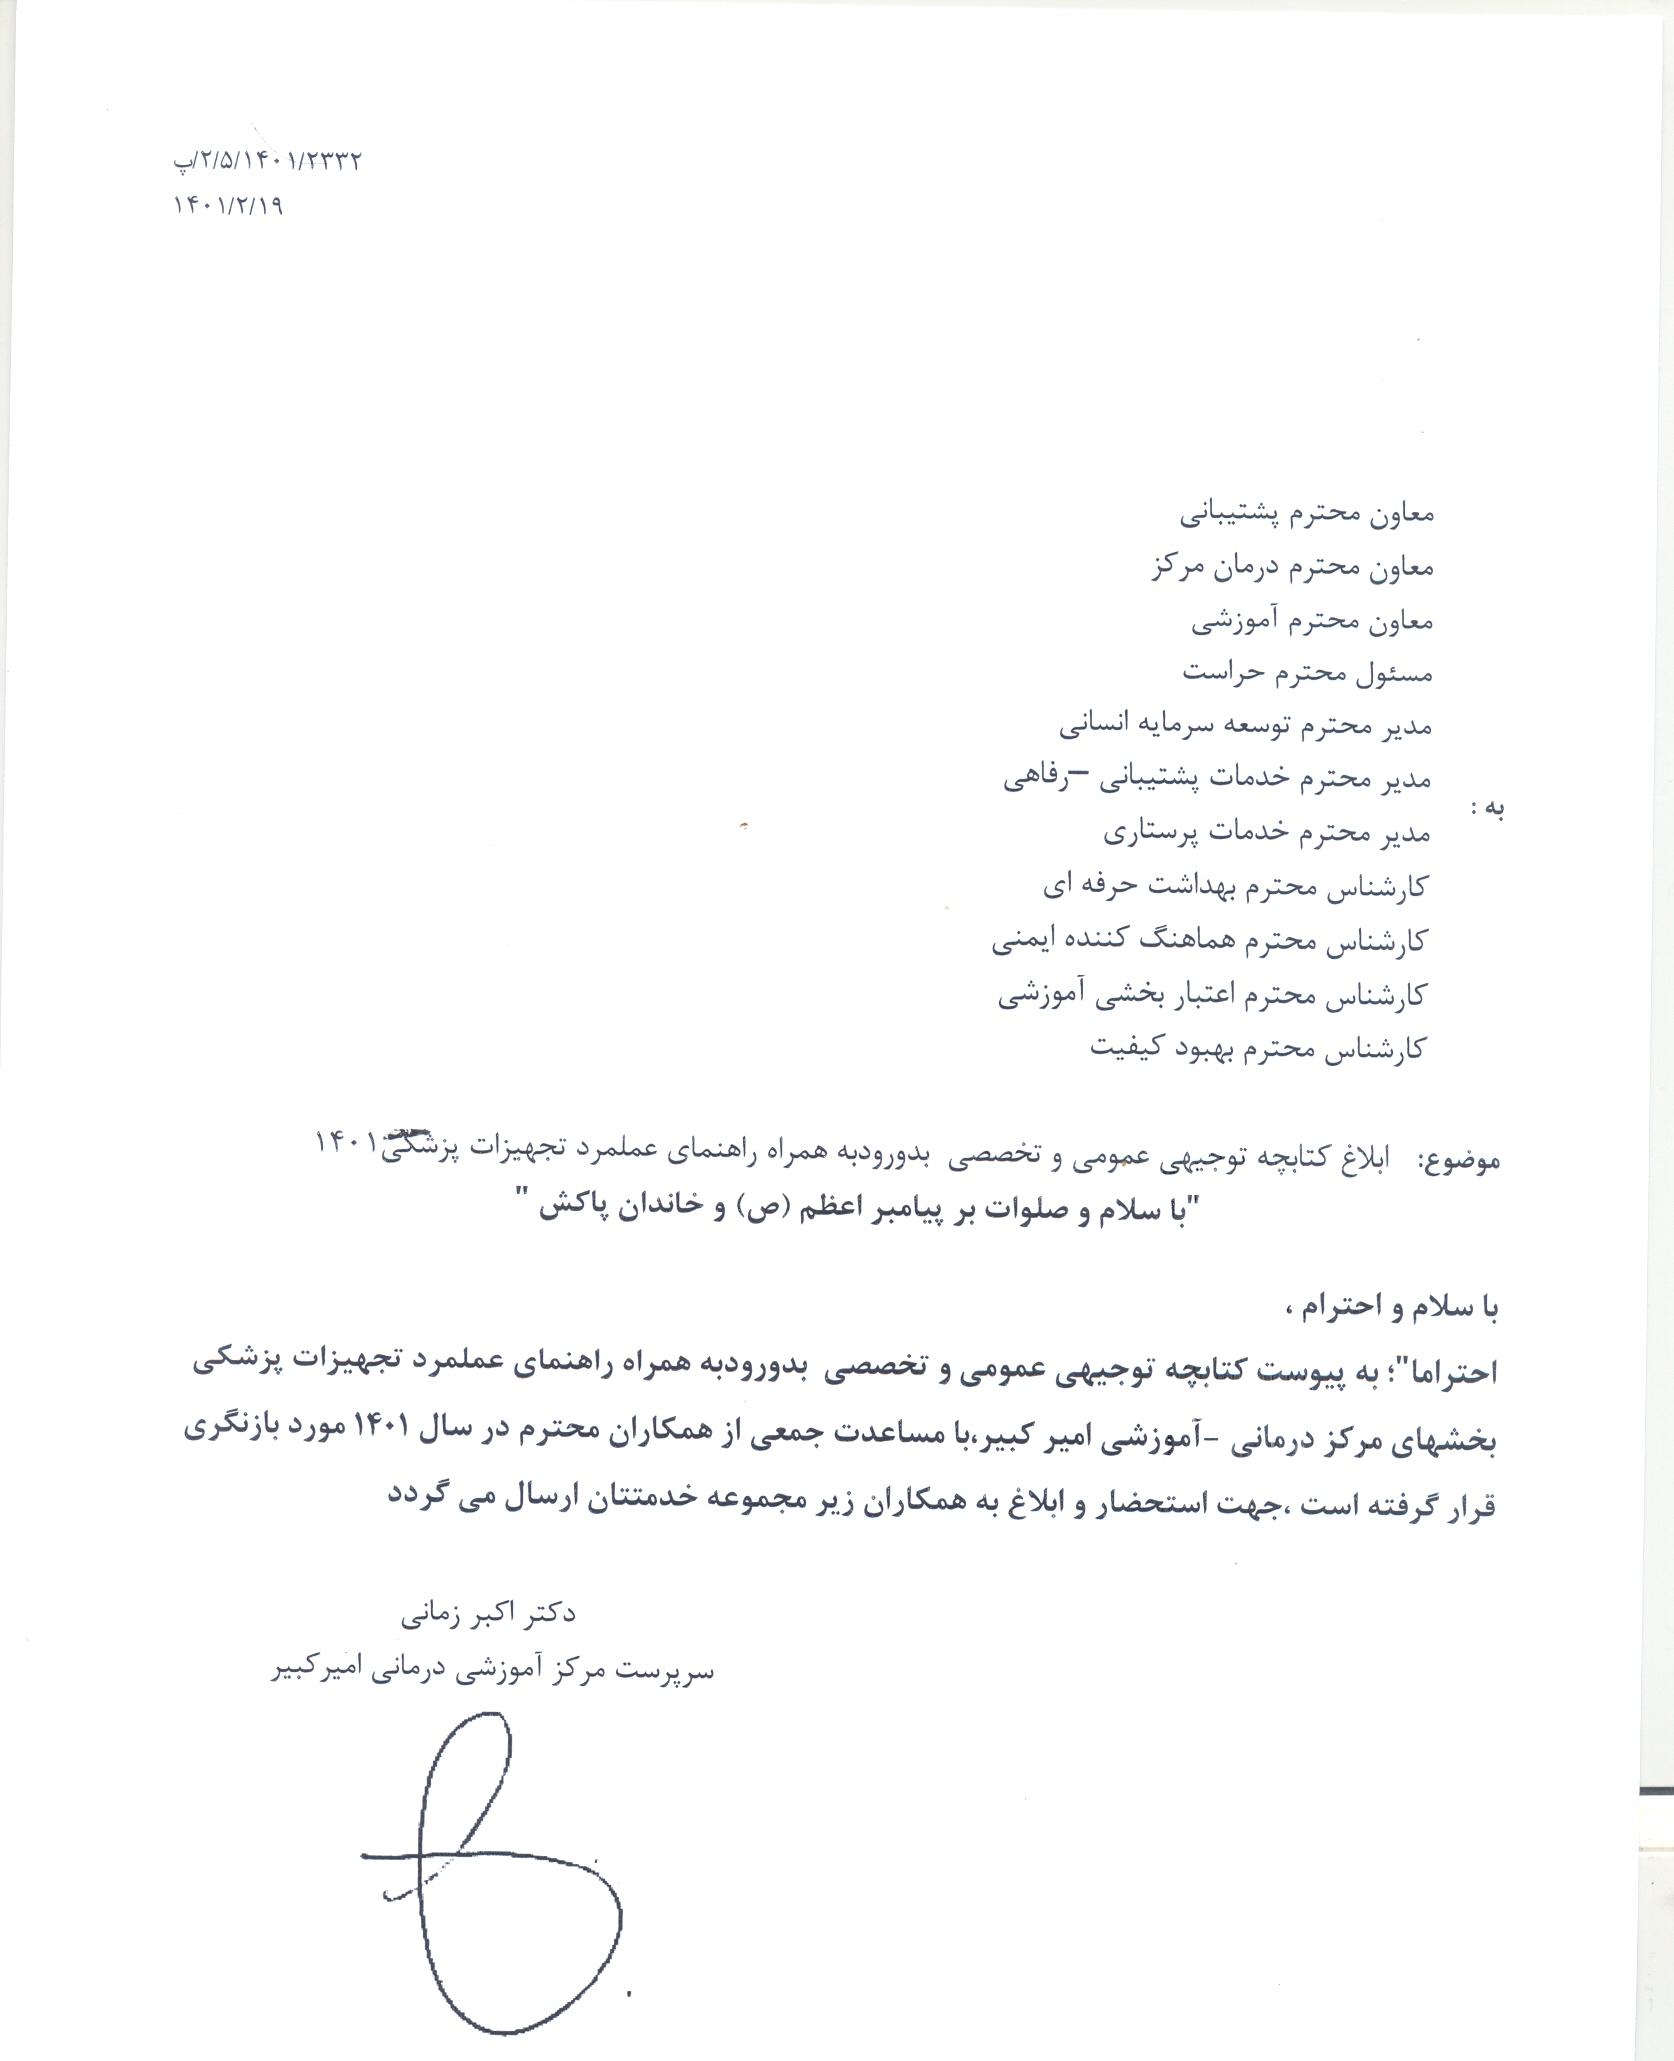 ۲/۵/۱۴۰۱/۲۳۳۲/پ
۱۴۰۱/۲/۱۹
معاون محترم پشتیبانی
معاون محترم درمان مرکز
معاون محترم آموزشی
مسئول محترم حراست
مدیر محترم توسعه سرمایه انسانی
مدیر محترم خدمات پشتیبانی –رفاهی
به :
مدیر محترم خدمات پرستاری
کارشناس محترم بهداشت حرفه ای
کارشناس محترم هماهنگ کننده ایمنی
کارشناس محترم اعتبار بخشی آموزشی
کارشناس محترم بهبود کیفیت
موضوع: ابلاغ کتابچه توجیهی عمومی و تخصصی بدورودبه همراه راهنمای عملمرد تجهیزات پزشکی۱۴۰۱
"با سلام و صلوات بر پیامبر اعظم (ص) و خاندان پاکش "
با سلام و احترام ،
احتراما"؛ به پیوست کتابچه توجیهی عمومی و تخصصی بدورودبه همراه راهنمای عملمرد تجهیزات پزشکی
بخشهای مرکز درمانی –آموزشی امیر کبیر،با مساعدت جمعی از همکاران محترم در سال ۱۴۰۱ مورد بازنگری
قرار گرفته است ،جهت استحضار و ابلاغ به همکاران زیر مجموعه خدمتتان ارسال می گردد
دکتر اکبر زمانی
سرپرست مرکز آموزشی درمانی امیرکبیر